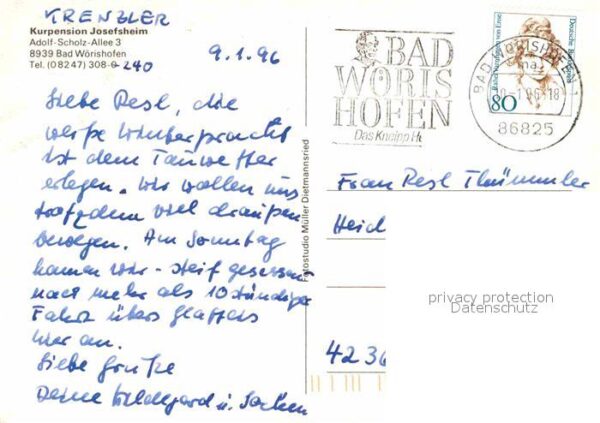 KRENZLER
Kurpension Josefsheim
Adolf-Scholz-Allee 3
8939 Bad Wörishofen
Tel. (08247) 308-0-240
9.1.96
Liebe Resl, die
weiße Winterpracht
ist dem Tauwetter
erlegen. Wir wollen uns
trotzdem viel draußen
bewegen. Am Sonntag
kamen wir - steif gesessen
nach mehr als 10 stündiger
Fahrt übers Glatteis
hier an.
Liebe Grüße
Deine Hildegard u.
Fotostudio Müller Dietmannsried
BAD
WÖRIS
HOFEN
Das Kneipp H
BAD WÖRISHOFEN 1
-9.-1.96-18
86825
Deutsche Bundespost
80
Frau Resl Thümmler
Heid
4236
privacy protection
Datenschutz